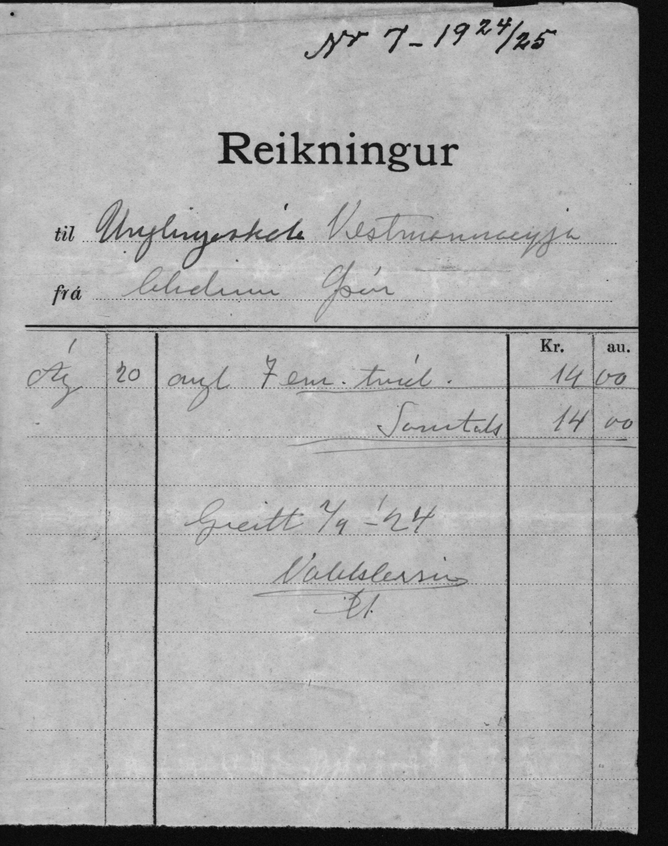 Nr 7 - 1924/25
Reikningur
til Unglingaskóla Vestmannaeyja
frá Þór
Kr. au.
Ág 20 augl 7 em. tvíd. 14 00
Samtals 14 00
Greitt 7/9 - '24